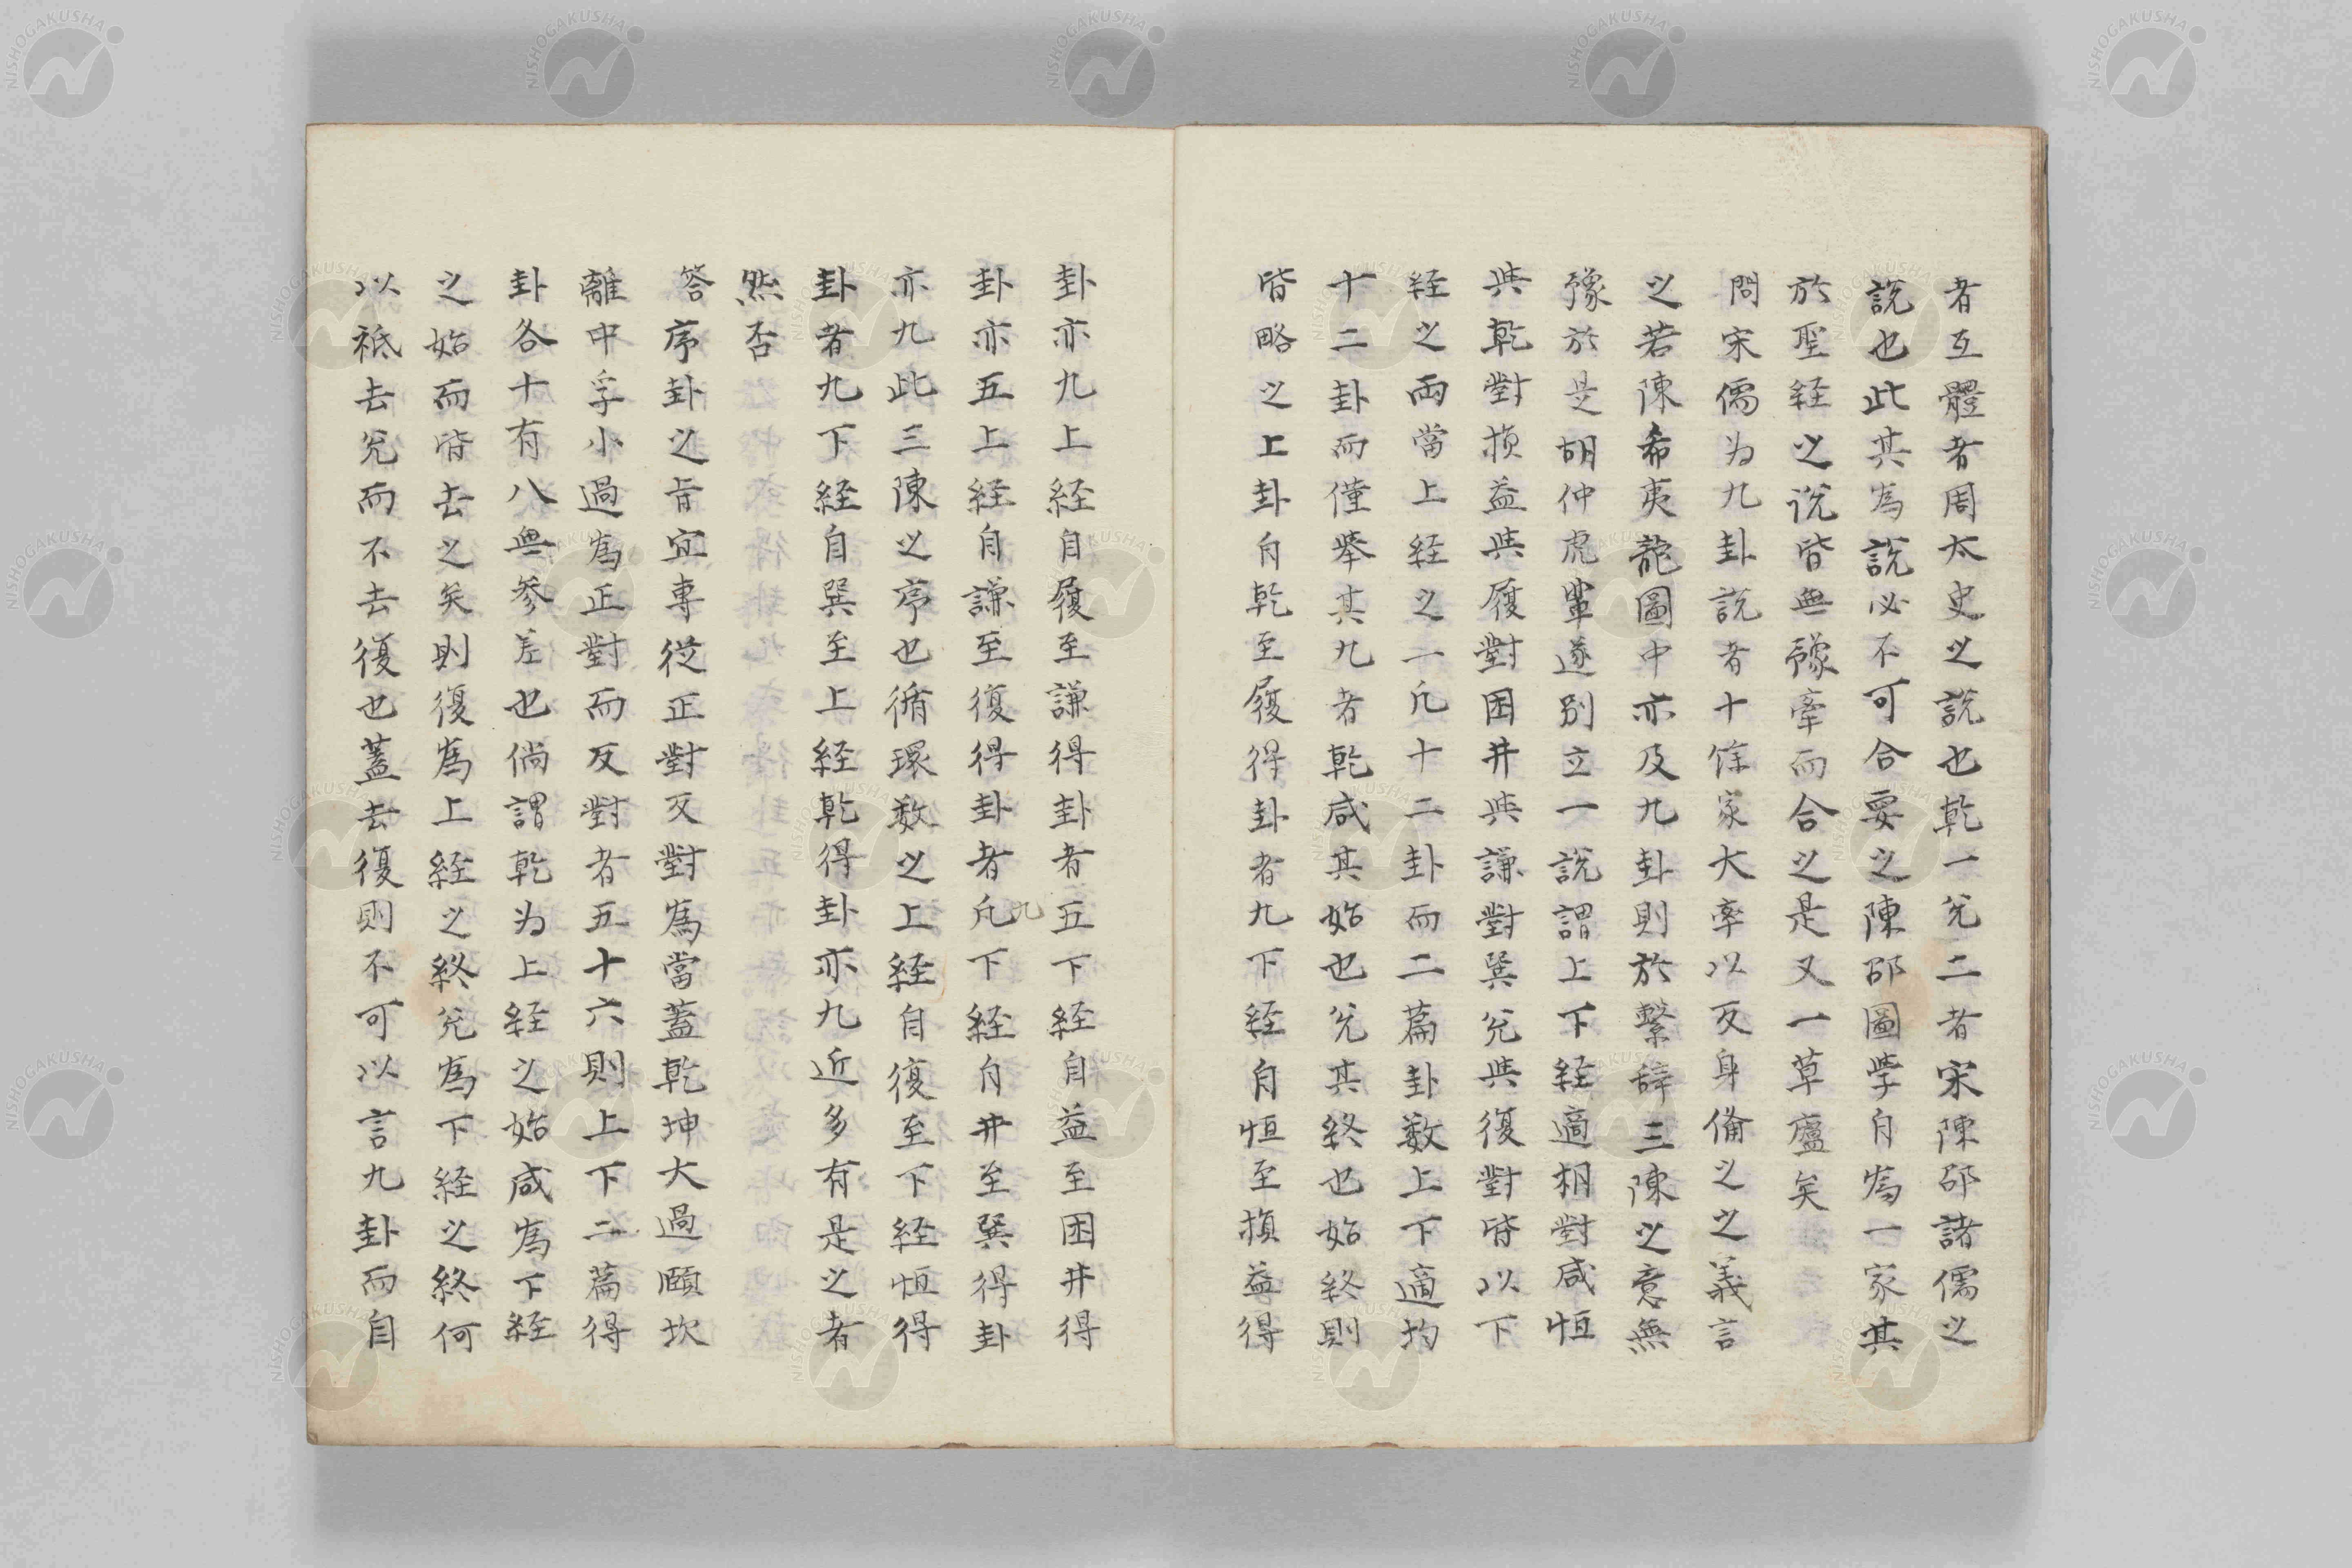 者互體者周太史之說也乾一兌二者宋陳邵諸儒之
說也此其為說必不可合要之陳邵圖學自為一家其
於聖経之説皆無豫牽而合之是又一草廬矣
問宋儒為九卦說者十餘家大率以反身備之之義言
之若陳希夷龍圖中亦及九卦則於繫辞三陳之意無
豫於是胡仲虎輩遂別立一說謂上下経適相對咸恒
與乾對損益與履對困井與謙對巽兌與復對皆以下
経之兩當上経之一凡十二卦而二篇卦数上下適均
十二卦而僅舉其九者乾咸其始也兌其終也始終則
皆略之上卦自乾至履得卦者九下経自恒至損益得
卦亦九上経自履至謙得卦者五下経自益至困井得
卦亦五上経自謙至復得卦者凡九下経自井至巽得卦
亦九此三陳之序也循環数之上経自復至下経恒得
卦者九下経自巽至上経乾得卦亦九近多有是之者
然否
答序卦之旨宜專從正對反對為當蓋乾坤大過頤坎
離中孚小過為正對而反對者五十六則上下二篇得
卦各十有八無參差也倘謂乾为上経之始咸為下経
之始而皆去之矣則復為上経之終兌為下経之終何
以祗去兌而不去復也蓋去復則不可以言九卦而自
NISHOGAKUSHA